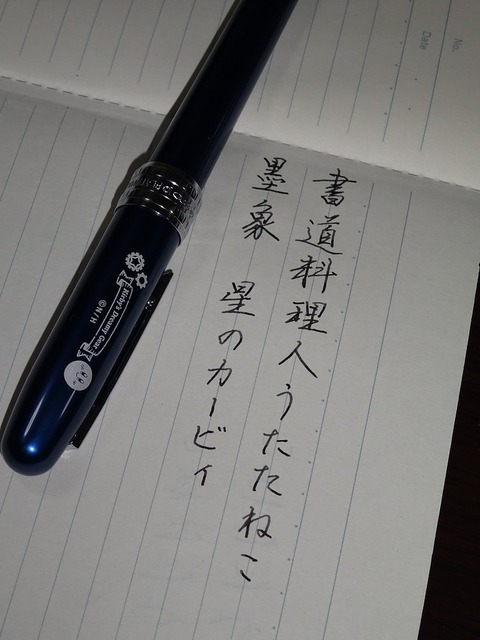 書道料理人うたたねこ
墨象 星のカービィ
Kirby's Dreamy Gear
©N/H
No.
Date